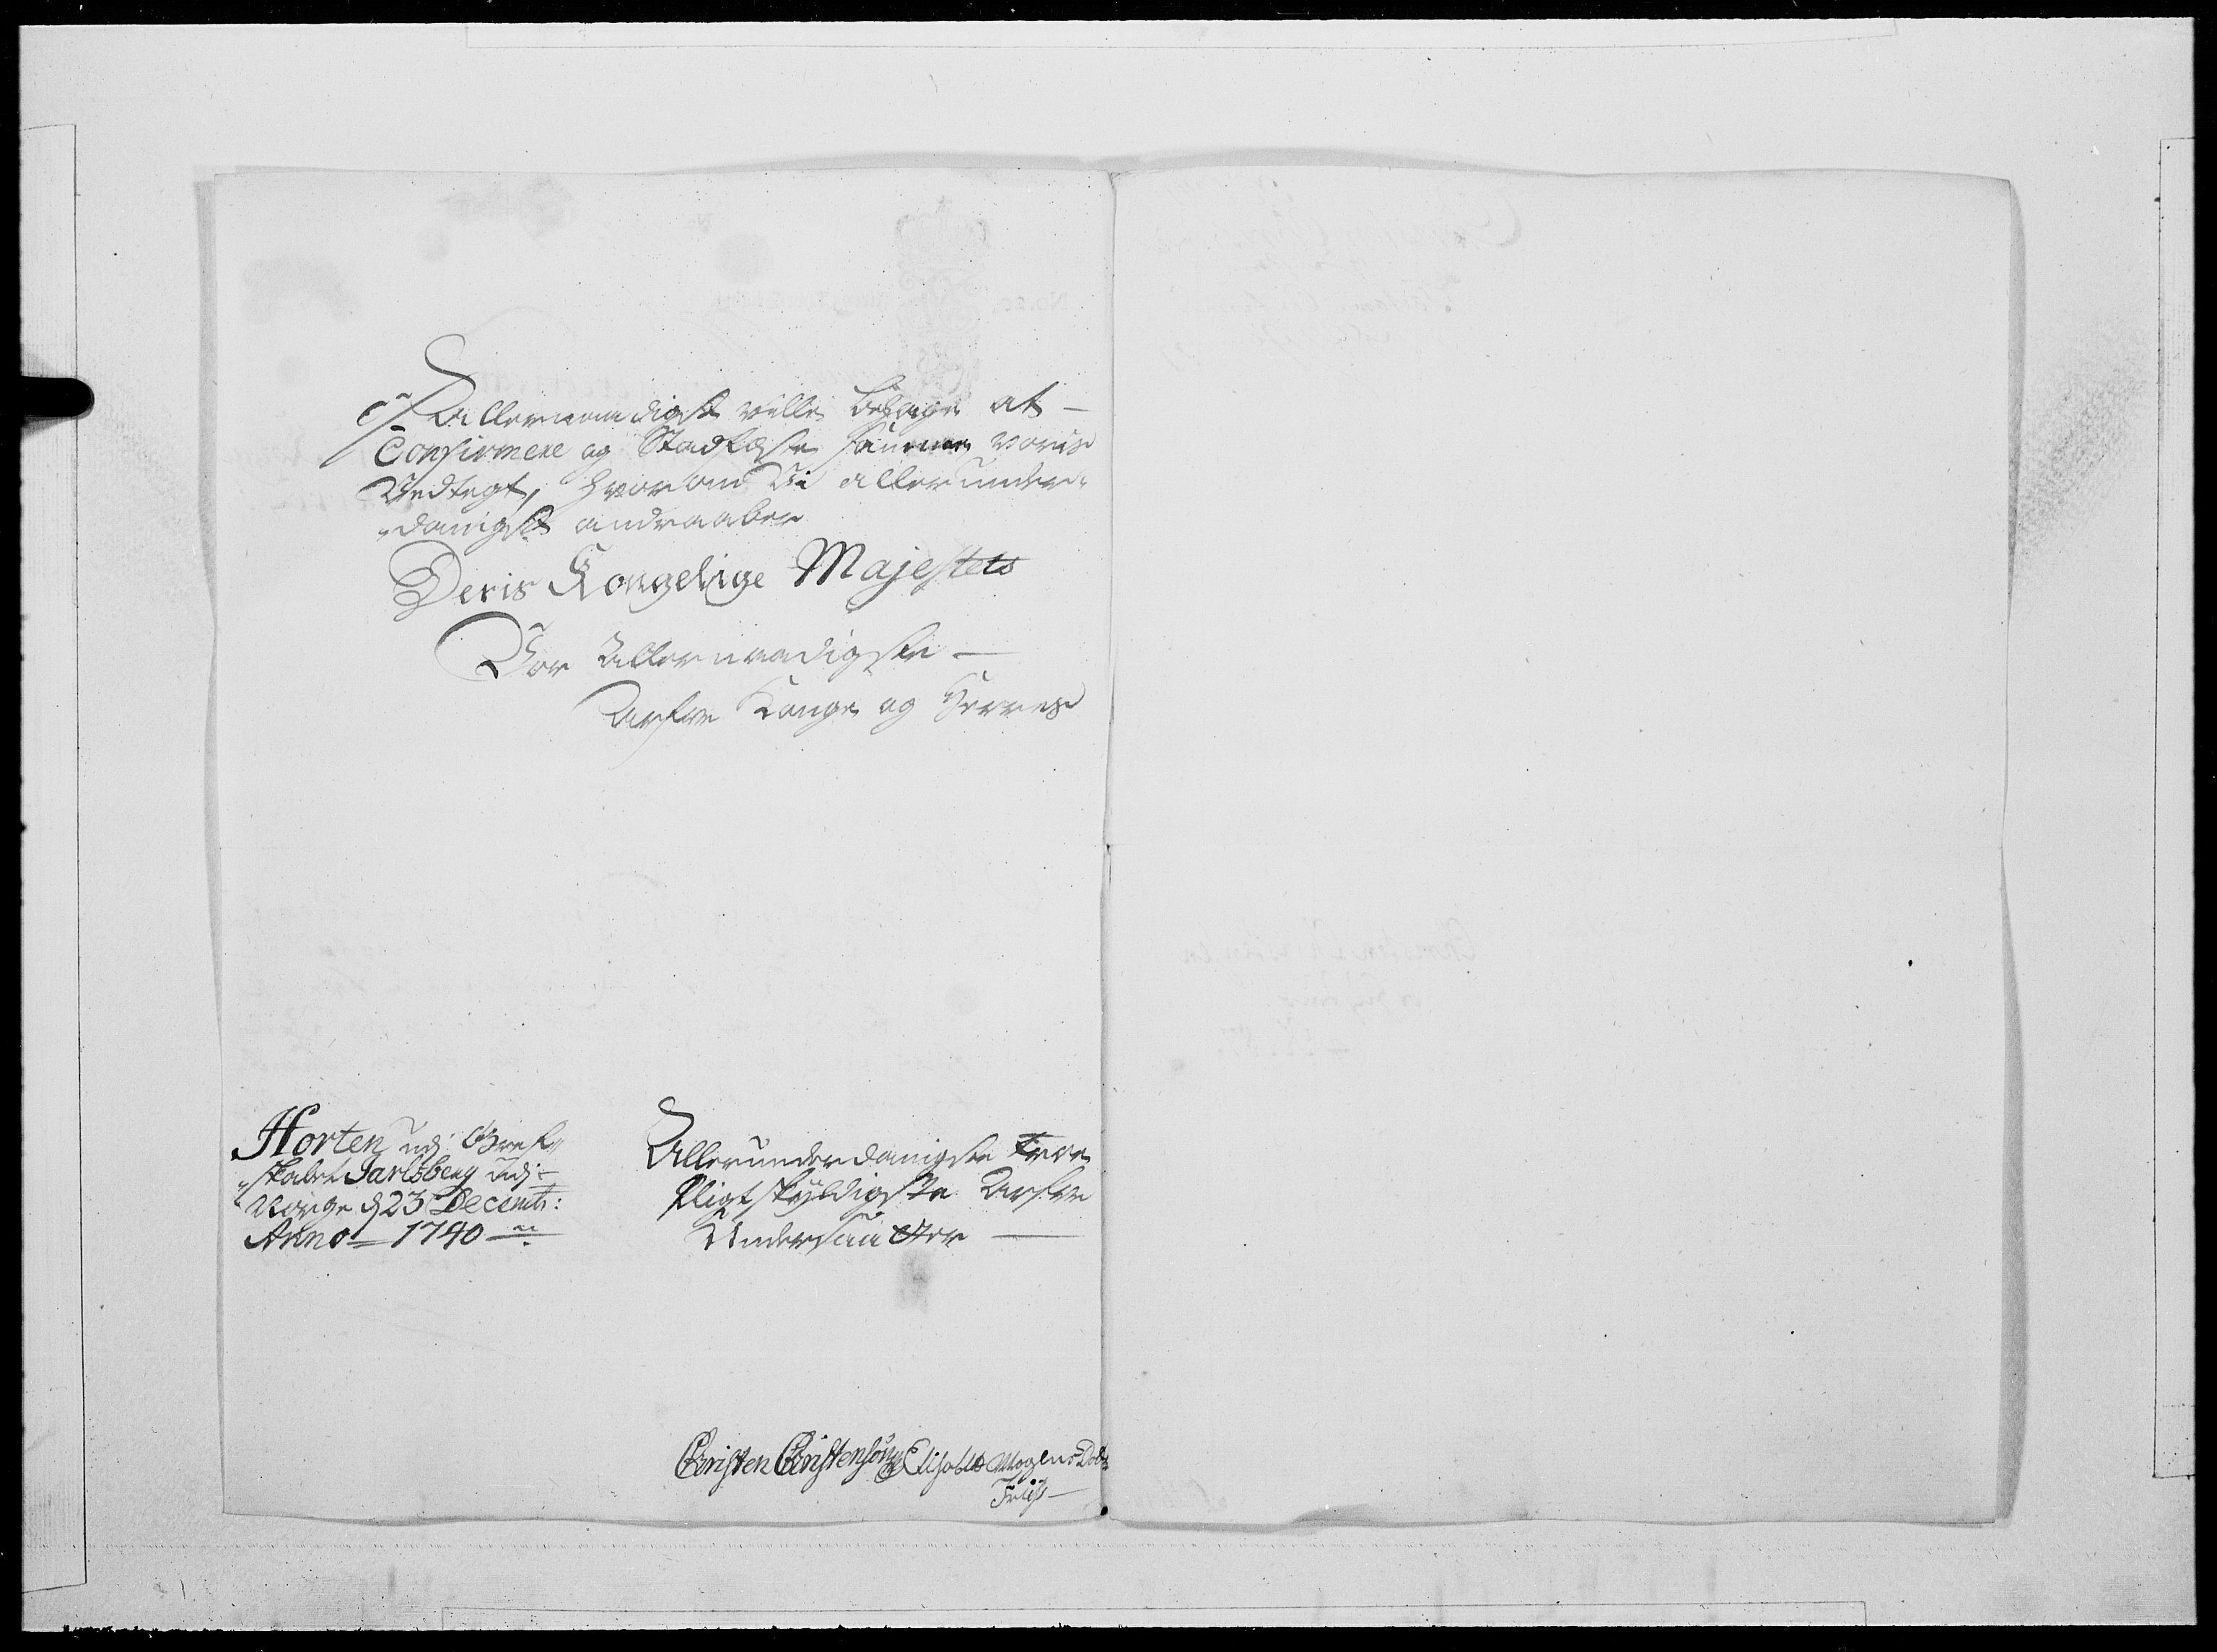 Allernaadigst ville behage at -
Confirmere og Stadfæste samme voris
Vedtegt, hvorom Vi allerunder-
danigst andraaber
Deris Kongelige Majestets
Vor Allernaadigste -
Arfve Konge og Herres
Horten udj Gref-
skabet Jarlsberg udj
Norge d 23 Decemb:
Anno 1740
Allerunderdanigste troe
Pligtskyldigste Arfve
Undersaatter
Christen Christensøn Elisabet Mogens Dob
Friis